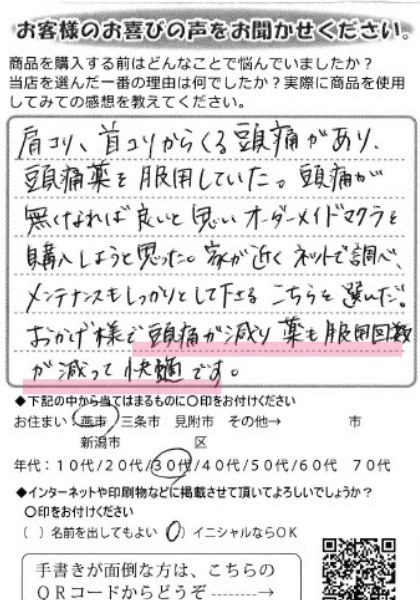 お客様のお喜びの声をお聞かせください。
商品を購入する前はどんなことで悩んでいましたか？
当店を選んだ一番の理由は何でしたか？実際に商品を使用
してみての感想を教えてください。
肩コリ、首コリからくる頭痛があり、
頭痛薬を服用していた。頭痛が
無くなれば良いと思いオーダーメイドマクラを
購入しようと思った。家が近くネットで調べ、
メンテナンスもしっかりとして下さる こちらを選んだ。
おかげ様で頭痛が減り薬も服用回数
が減って快適です。
◆下記の中から当てはまるものに○印をお付けください
お住まい：燕市 三条市 見附市 その他→ 市
新潟市 区
年代：10代/20代/30代/40代/50代/60代 70代
◆インターネットや印刷物などに掲載させて頂いてよろしいでしょうか？
○印をお付けください
（ ）名前を出してもよい （○）イニシャルならOK
手書きが面倒な方は、こちらの
QRコードからどうぞ --------→